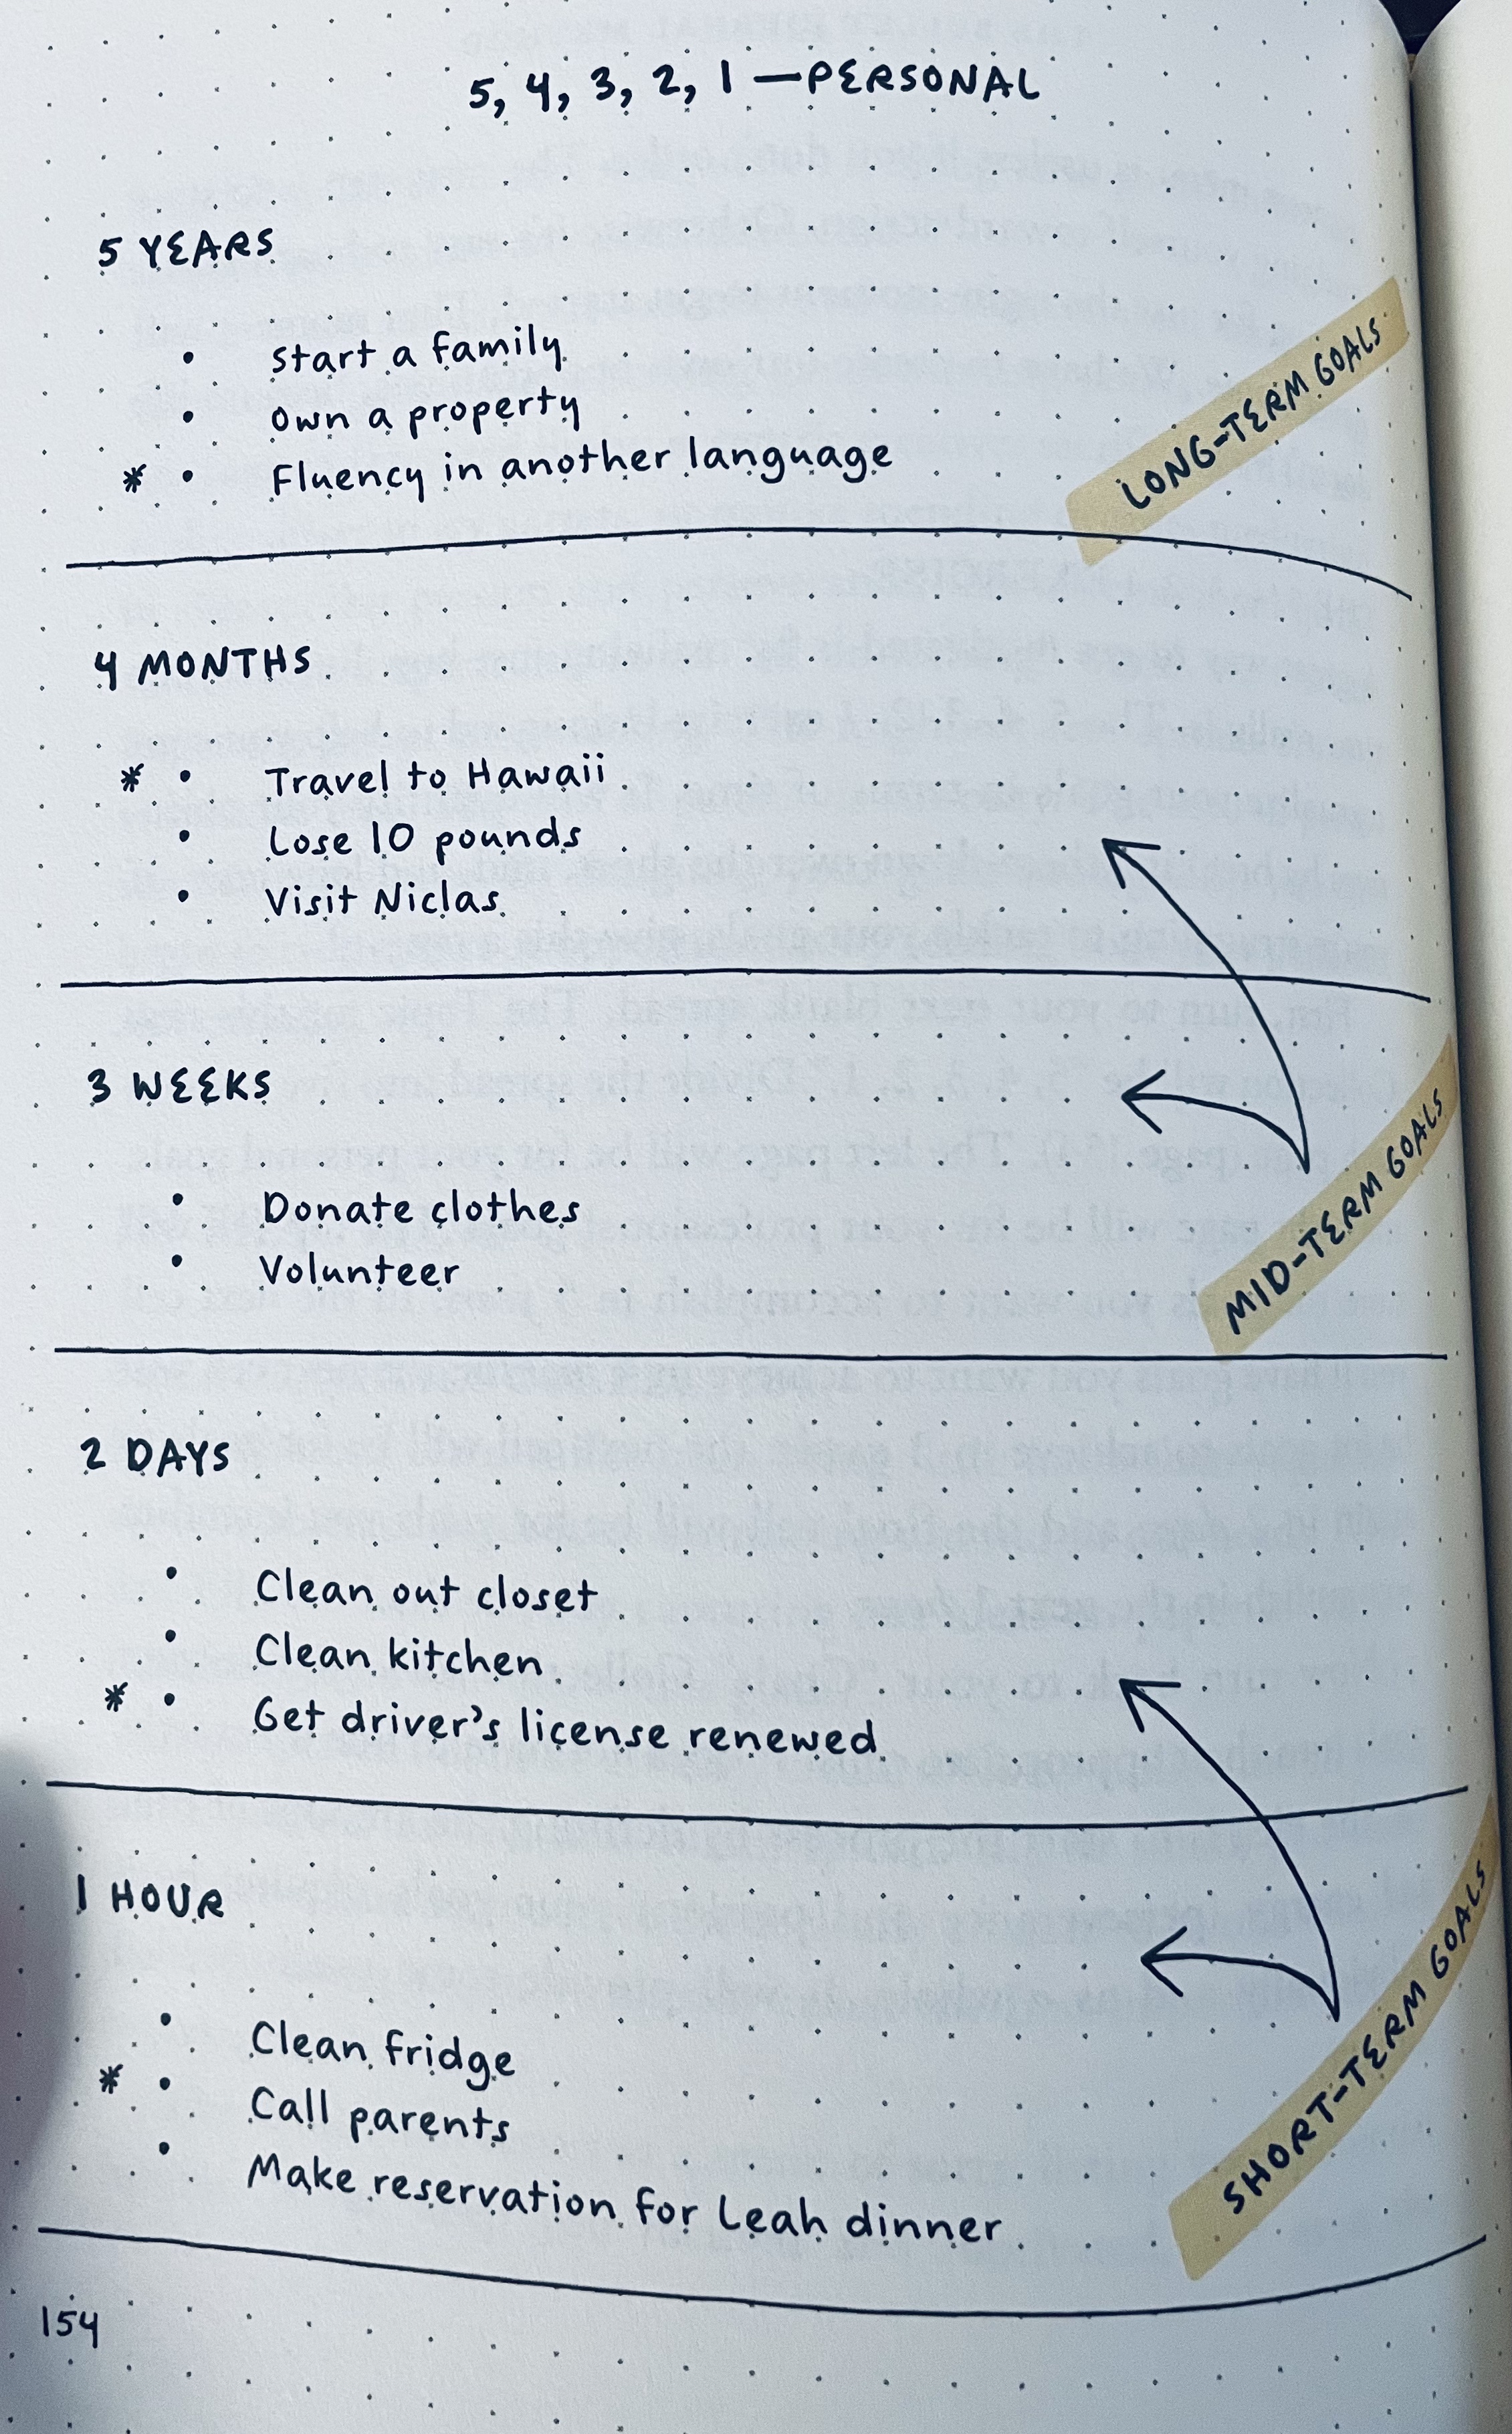 5, 4, 3, 2, 1 —PERSONAL
5 YEARS
• Start a family
• Own a property
* • Fluency in another language
LONG-TERM GOALS
4 MONTHS
* • Travel to Hawaii
• Lose 10 pounds
• Visit Niclas
3 WEEKS
• Donate clothes
• Volunteer
MID-TERM GOALS
2 DAYS
• Clean out closet
• Clean kitchen
* • Get driver's license renewed
1 HOUR
• Clean fridge
* • Call parents
• Make reservation for Leah dinner
SHORT-TERM GOALS
154